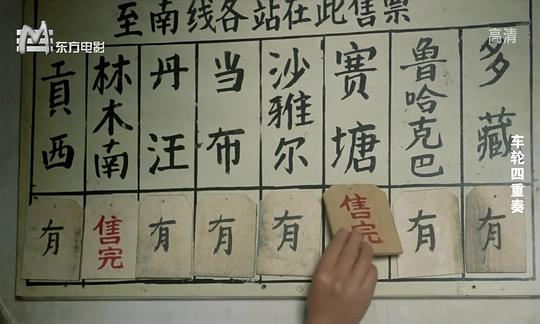 至南线各站在此售票
东方电影
高清
贡西
林木南
丹汪
当布
沙雅尔
赛塘
鲁哈克巴
多藏
车轮四重奏
有
售完
有
有
有
售完
有
有